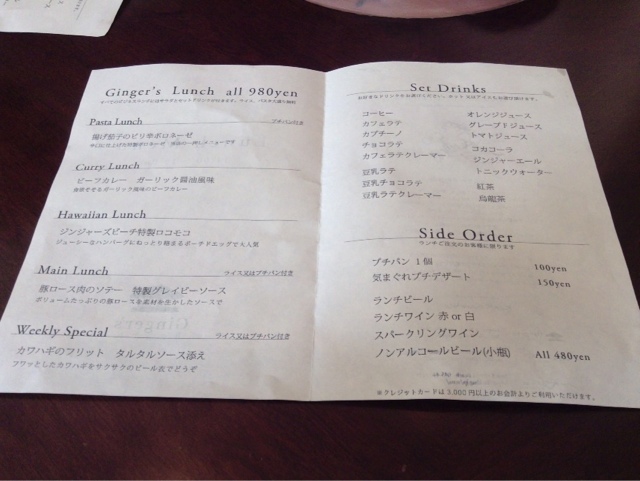 Ginger's Lunch all 980yen
Pasta Lunch プチパン付き
揚げ茄子のピリ辛ボロネーゼ
Curry Lunch
ビーフカレー ガーリック醤油風味
食欲そそるガーリック風味のビーフカレー
Hawaiian Lunch
ジンジャーズビーチ特製ロコモコ
ジューシーなハンバーグにねっとり絡まるポーチドエッグで大人気
Main Lunch ライス又はプチパン付き
豚ロース肉のソテー 特製グレイビーソース
ボリュームたっぷりの豚ロースを素材を生かしたソースで
Weekly Special ライス又はプチパン付き
カワハギのフリット タルタルソース添え
フワッとしたカワハギをサクサクのビール衣でどうぞ
Set Drinks
お好きなドリンクをお選びください。ホット又はアイスもお受け頂けます。
コーヒー オレンジジュース
カフェラテ グレープFジュース
カプチーノ トマトジュース
チョコラテ コカコーラ
カフェラテクレーマー ジンジャーエール
豆乳ラテ トニックウォーター
豆乳チョコラテ 紅茶
豆乳ラテクレーマー 烏龍茶
Side Order
ランチご注文のお客様に限ります
プチパン 1個 100yen
気まぐれプチデザート 150yen
ランチビール
ランチワイン 赤 or 白
スパークリングワイン
ノンアルコールビール(小瓶) All 480yen
※クレジットカードは3,000円以上のお会計よりご利用いただけます。